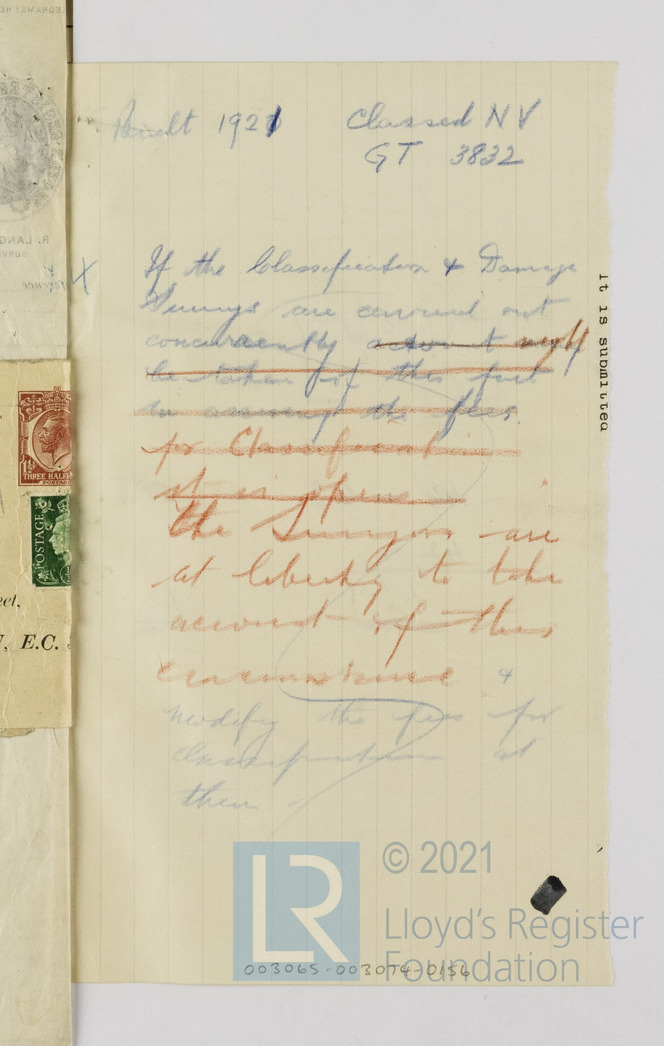 Built 1921 Classed NV
GT 3832
If the Classification & Damage
Surveys are carried out
concurrently account might
be taken of this fact
in assessing the fees.
for Classification
it is open
the Surveyors are
at liberty to take
account of this
circumstance &
modify the fees for
Classification at
their
It is submitted
POSTAGE
THREE HALF
E.C.
© 2021
LR
Lloyd's Register
Foundation
003065-003074-0156